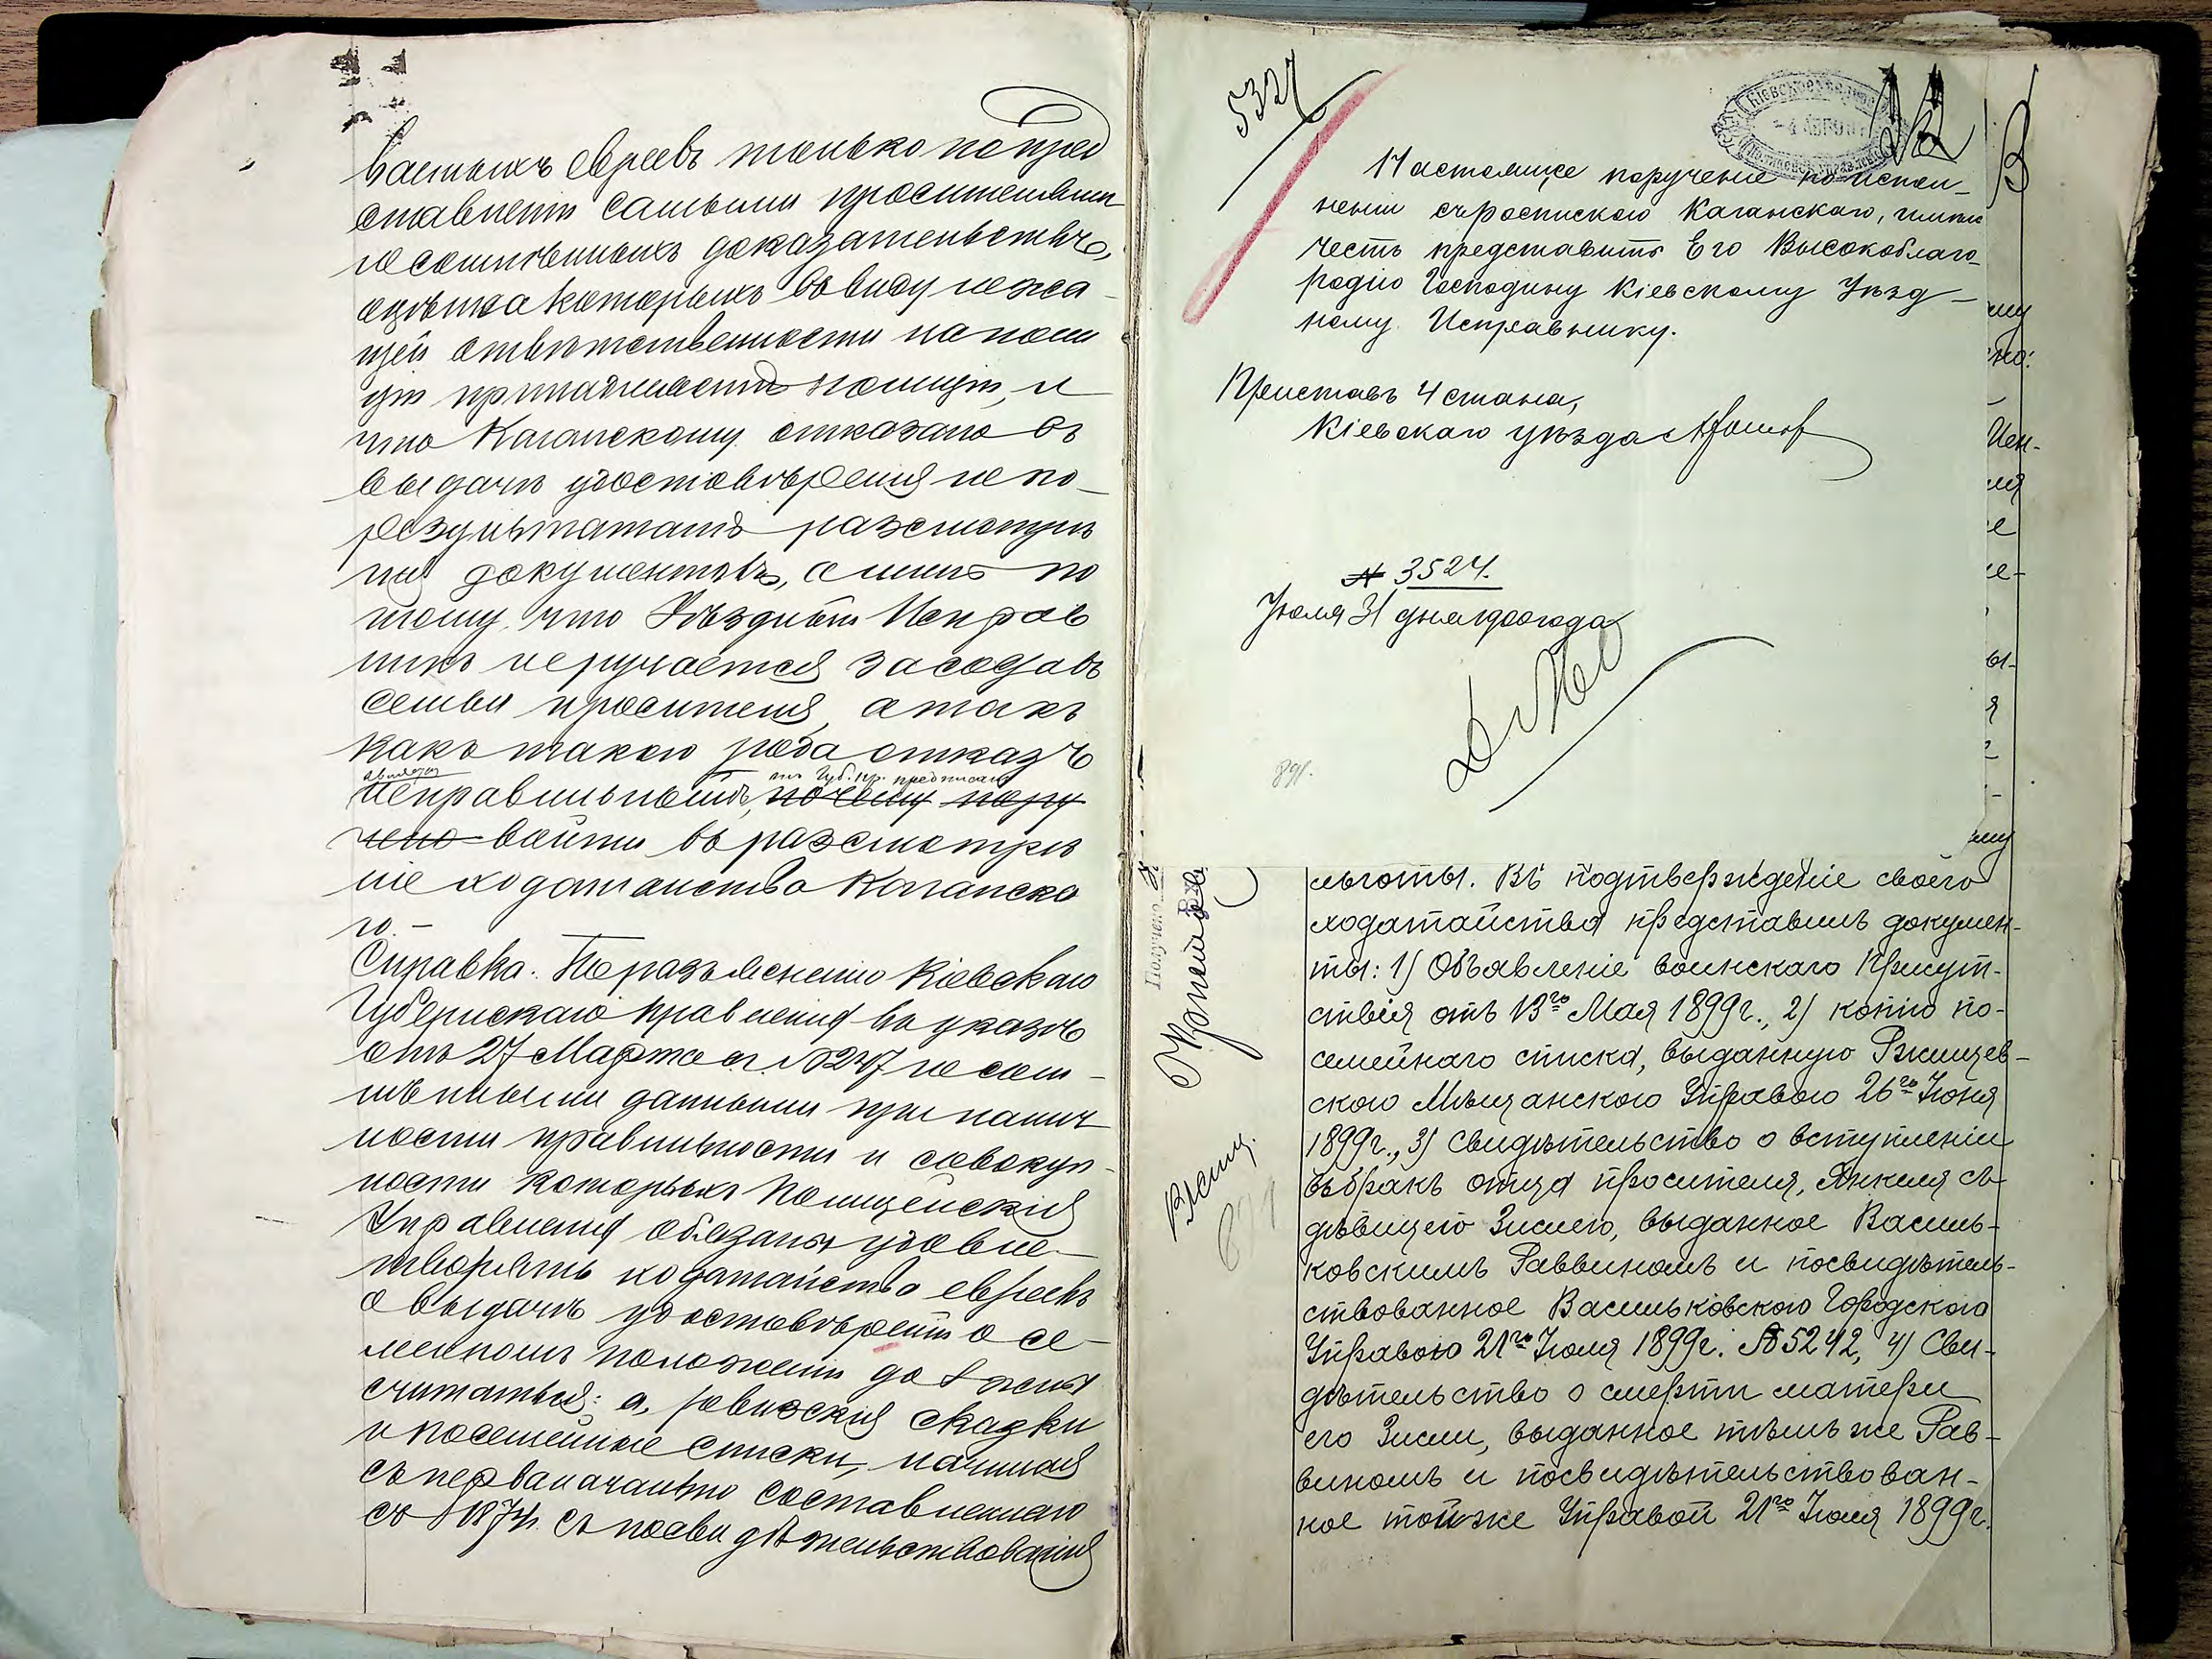 евъ только по пред
ставленіи самыми просителями
несомнѣнныхъ доказательствъ,
оцѣнка которыхъ въ виду лежа-
щей отвѣтственности на поли
ціи принадлежитъ полиціи, и
что Каганскому отказано въ
выдачѣ удостовѣренія не по-
результатамъ разсмотрѣ
нія документовъ, а лишь по
тому, что Уѣздный Исправ
никъ не ручается за составъ
семьи просителя, а такъ
какъ такого рода отказъ
является Губ. пр. предписано
неправильнымъ, почему пору
чено войти въ разсмотрѣ
ніе ходатайства Каганска
го.-
Справка. По разъясненію Кіевскаго
Губернскаго Правленія въ указѣ
отъ 27 Марта с.г. № 247 несом-
нѣнными данными при налич
ности правильности и совокуп-
ности которыхъ Полицейскія
Управленія обязаны удовле-
творять ходатайства евреевъ
о выдачѣ удостовѣреній о се-
мейномъ положеніи должны
считаться: а, ревизскія сказки
и посемейные списки, начиная
съ первоначально составленнаго
въ 1874 г. съ посвидѣтельствованія
5327
Кіевское Уѣздное Полицейское Управленіе
Настоящее порученіе по испол-
неніи съ роспискою Каганскаго, имѣю
честь представить Его Высокоблаго-
родію Господину Кіевскому Уѣзд-
ному Исправнику.
Приставъ 4 стана,
Кіевскаго уѣзда
№ 3524.
Іюля 31 дня 1900 года
891.
Получено
льготы. Въ подтвержденіе своего
ходатайства представилъ докумен-
ты: 1) Объявленіе воинскаго Присут-
ствія отъ 13го Мая 1899г., 2) копію по-
семейнаго списка, выданную Ржищев-
скою Мѣщанскою Управою 26го Іюня
1899г., 3) Свидѣтельство о вступленіи
въ бракъ отца просителя, Янкеля съ
дѣвицею Зислею, выданное Василь-
ковскимъ Раввиномъ и посвидѣтель-
ствованное Васильковскою Городскою
Управою 21го Іюля 1899г. № 5242, 4) Сви-
дѣтельство о смерти матери
его Зисли, выданное тѣмъ же Рав-
виномъ и посвидѣтельствован-
ное той же Управой 21го Іюля 1899г.